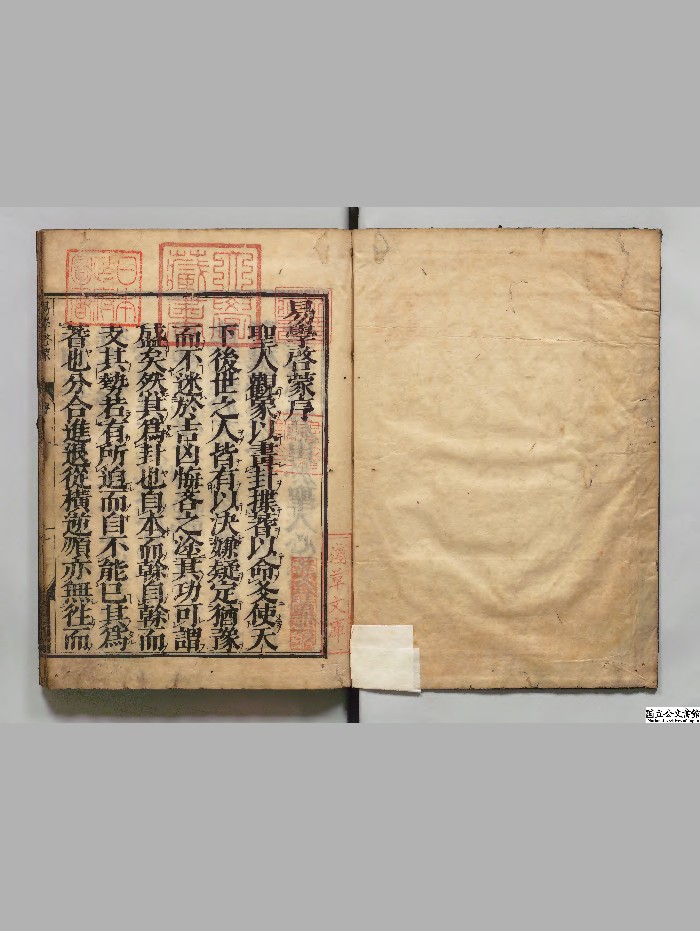 易學啓蒙序
聖人觀象以畫卦揲蓍以命爻使天
下後世之人皆有以決嫌疑定猶豫
而不迷於吉凶悔吝之塗其功可謂
盛矣然其爲卦也自本而榦自榦而
支其勢若有所迫而自不能已其爲
蓍也分合進退從横逆順亦無往而
淺草文庫
日本
政府
圖書
國立公文書館
National Archives of Japan